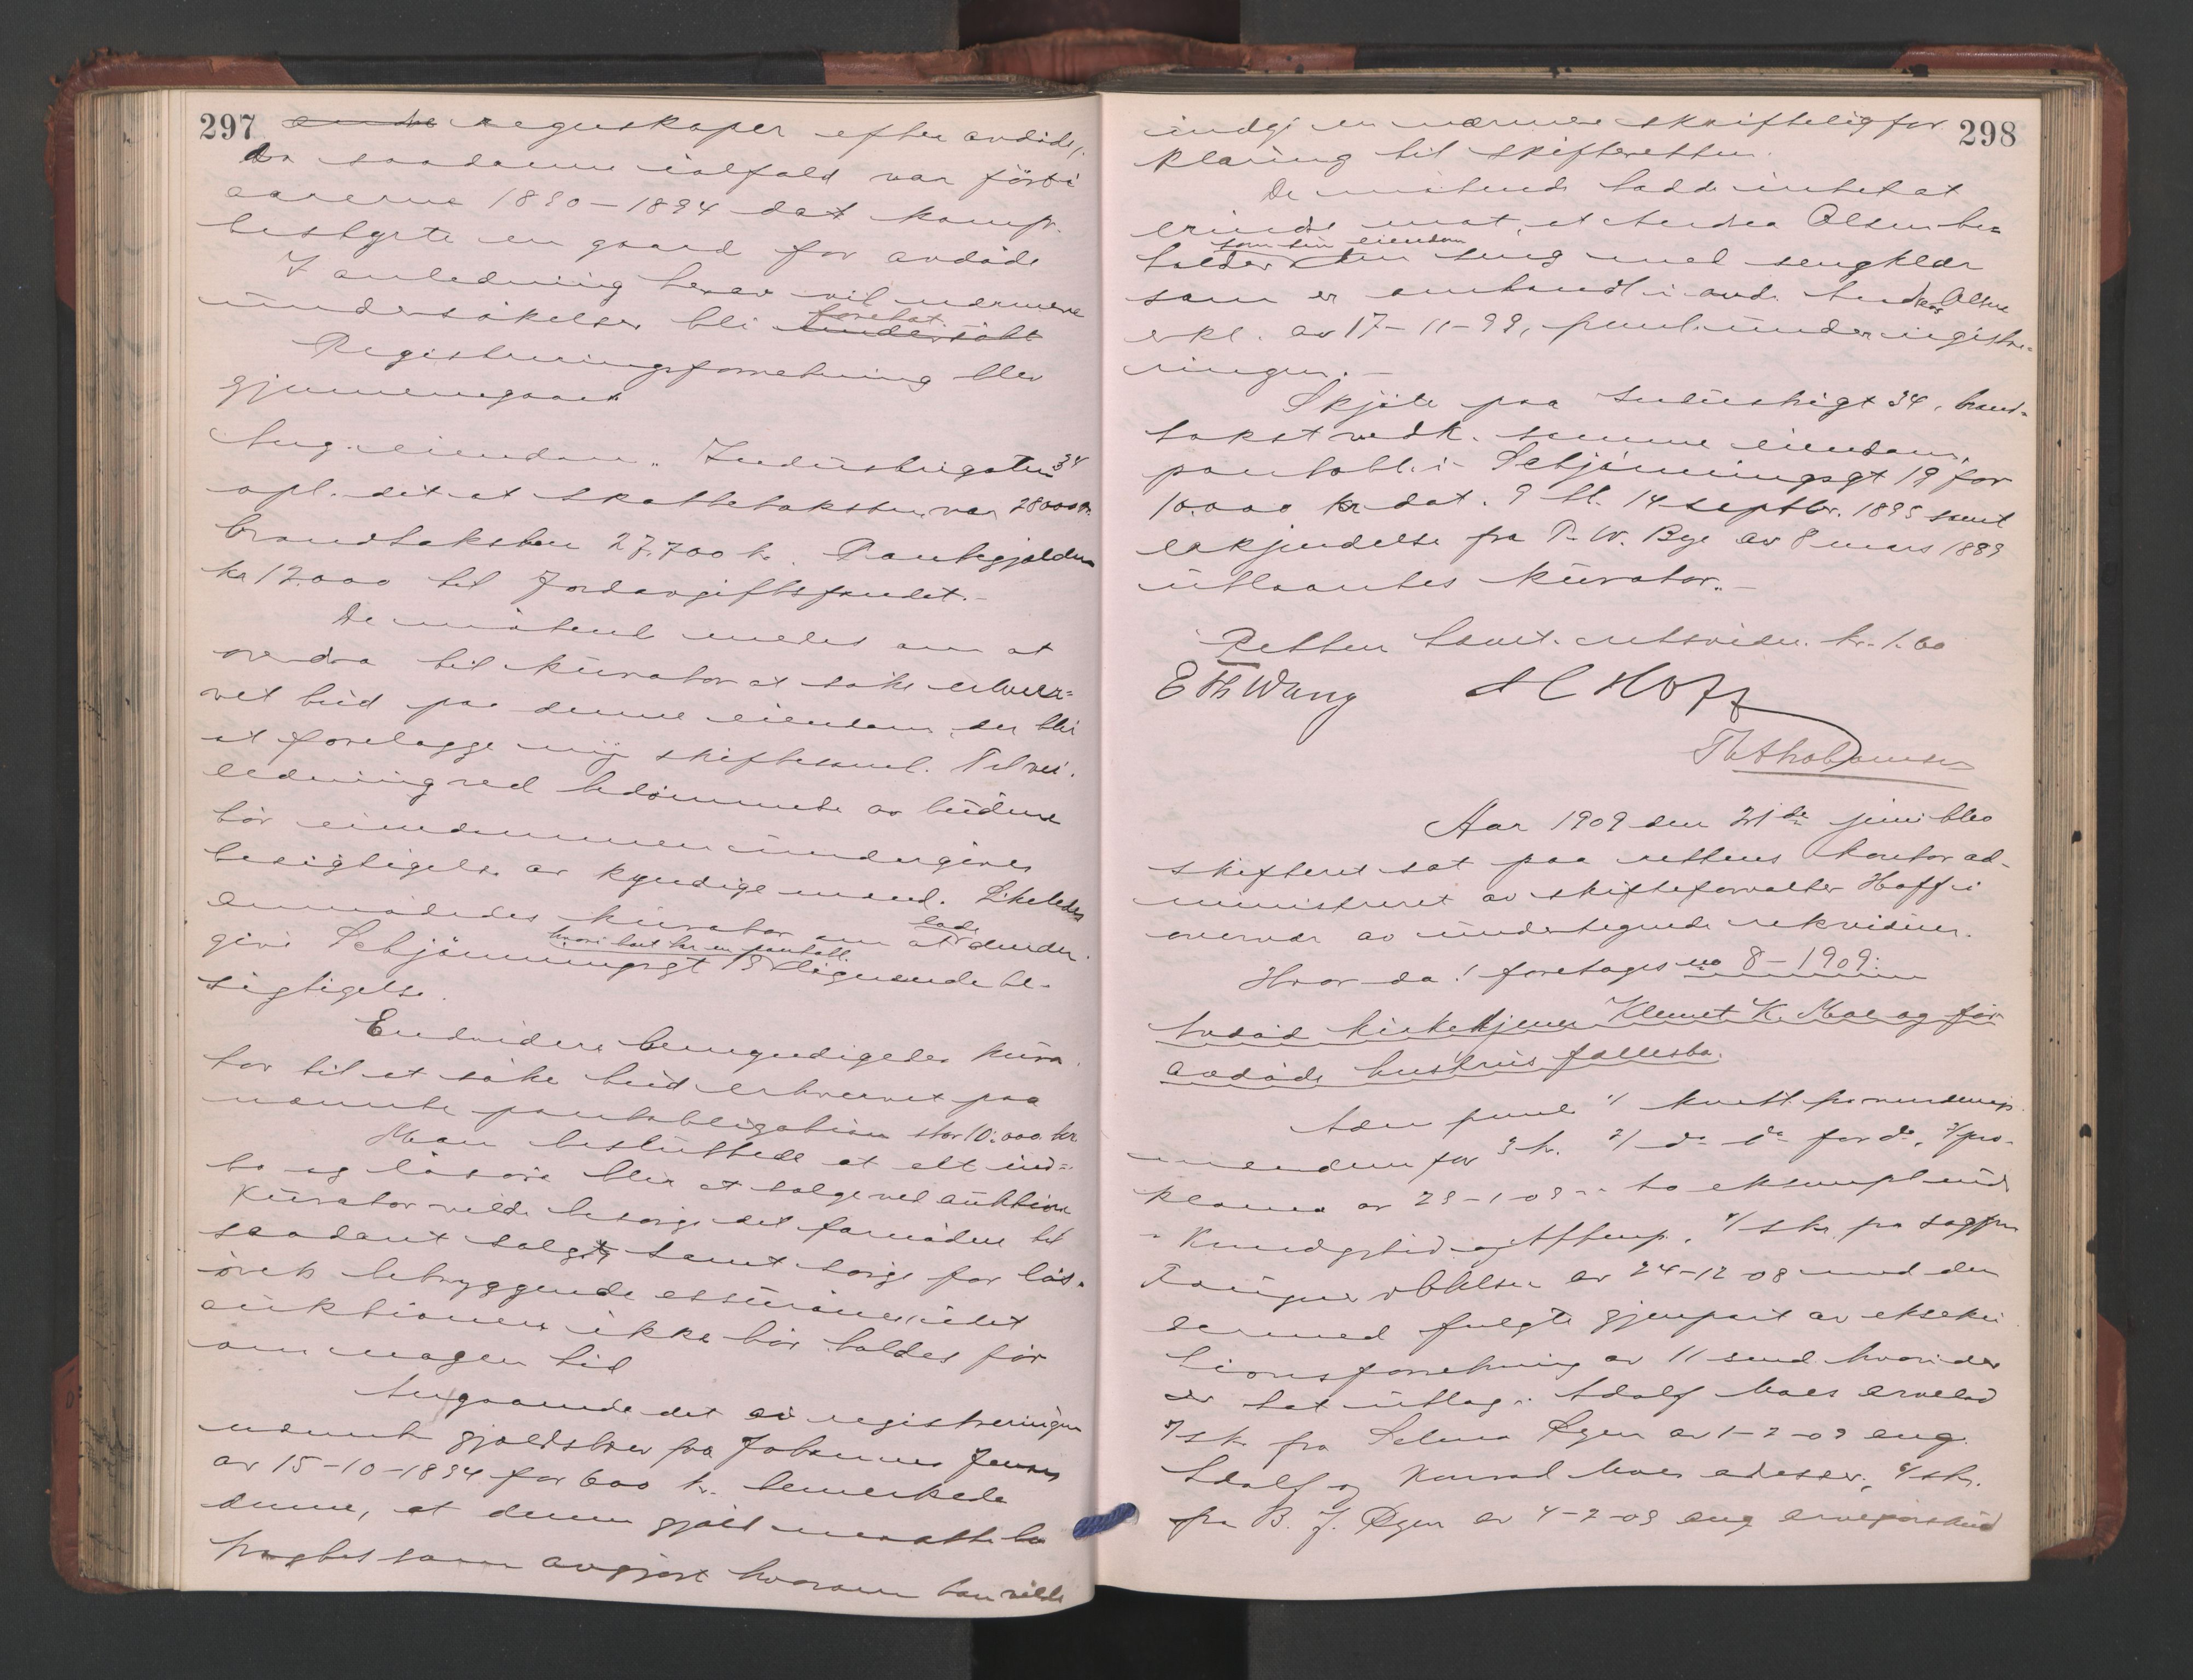 297
regnskaper efter avdöde,
da saadanne ialfald var fört i
aarene 1890-1894 da komp.
bestyrte en gaard for avdöde
I anledning herav vil nærmere
undersökelser bli foretat
Registreringsforretning blev
gjennemgaaet
Ang. eiendom Industrigaten 34
opl. det at skattetaksten var 28000 kr.
brandtaksten 27.700 kr. Pantegjælden
kr 17.000 til Jordavgiftsfondet.-
De mötende enedes om at
overdra til kurator at söke erhver=
vet bud paa denne eiendom, der blir
at forelægge ny skiftesaml. Til vei-
ledning ved bedömmelse av budene
bör eiendommen undergives
besigtigelse av kyndige mænd. Likeledes
anmodedes kurator om at lade under
give Schjönningsgt 19 hvori boet har en pantobl. lignende be-
sigtigelse.
Endvidere bemyndigedes kura
tor til at söke bud erhvervet paa
nævnte pantobligation stor 10.000 kr.
Man besluttede at alt ind=
bo og lösöre blir at sælge ved auktion
Kurator vilde besörge det fornödne til
saadant salg samt sörge for lös-
örets betryggende assurance, idet
auktionen ikke bör holdes för
om nogen tid
Angaaende det i registreringen
nævnte gjældsbrev fra Johannes Jensen
av 15-10-1894 for 600 kr. bemerkede
denne, at denne gjæld maatte be
tragtes som avgjort hvorom han vilde
298
indgi en nærmere skriftelig for
klaring til skifteretten.
De mötende hadde intet at
erindre mot, at Andrea Olsen be=
holder som sin eiendom den seng med sengklær
som er omhandl. i avd. Andreas Olsens
erkl. av 17-11-99, peml. under registre=
ringen.-
Skjöte paa Industrigt 34, brand=
takst vedk. samme eiendom,
pantobl. i Schjönningsgt 19 for
10.000 kr dat. 9 tl. 14 septbr. 1895 samt
erkjendelse fra P. W. Bye av 8 mars 1889
utlaantes kurator.-
Retten hævet. Retsvidn. kr. 1.60
E Th Wang H Hoff
Aar 1909 den 21de juni blev
skifteret sat paa rettens kontor ad-
ministreret av skifteforvalter Hoff i
overvær av undertegnede retsvidner.
Hvor da! foretages no 8-1909:
Avdöd kirketjener Klemet K. Moe og för
avdöde hustrus fællesbo.
Adm. peml. 1/ kvitt. for
for 3 kr. 2/ do do for do, 3/ pro-
klama av 29-1-09 to eksempl. av
Kundgj.tid. og Aftenp. 4/ skr. fra sagfm
av 24-12-08 med den
dermed fulgte gjenpart av ekseku
tionsforretning av 11 s.md. hvori der
er tat utlæg i Adolf Moes arvelod
5/ skr. fra Selma Dgen av 1-2-09 ang.
Adolf og Konrad Moes adresser, 6/ skr.
fra B. J. Dgen av 4-2-09 ang arveforskud